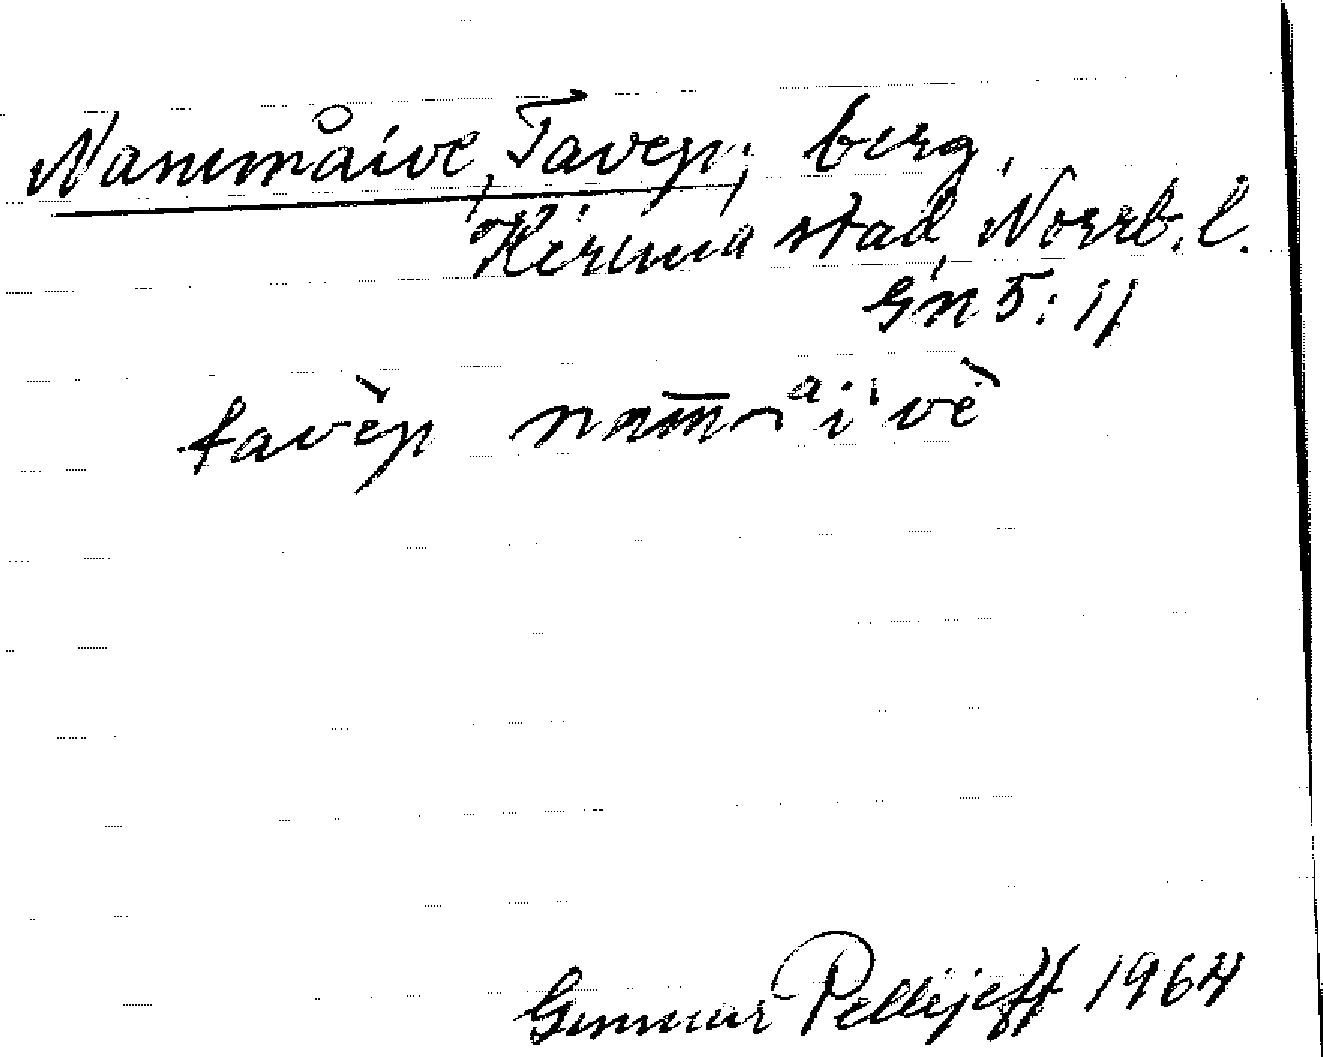 Nammåive, Tavep, berg,
Kiruna stad, Norrb. l.
Gn 5: 11
tavĕp
Gunnar Pellijeff 1964